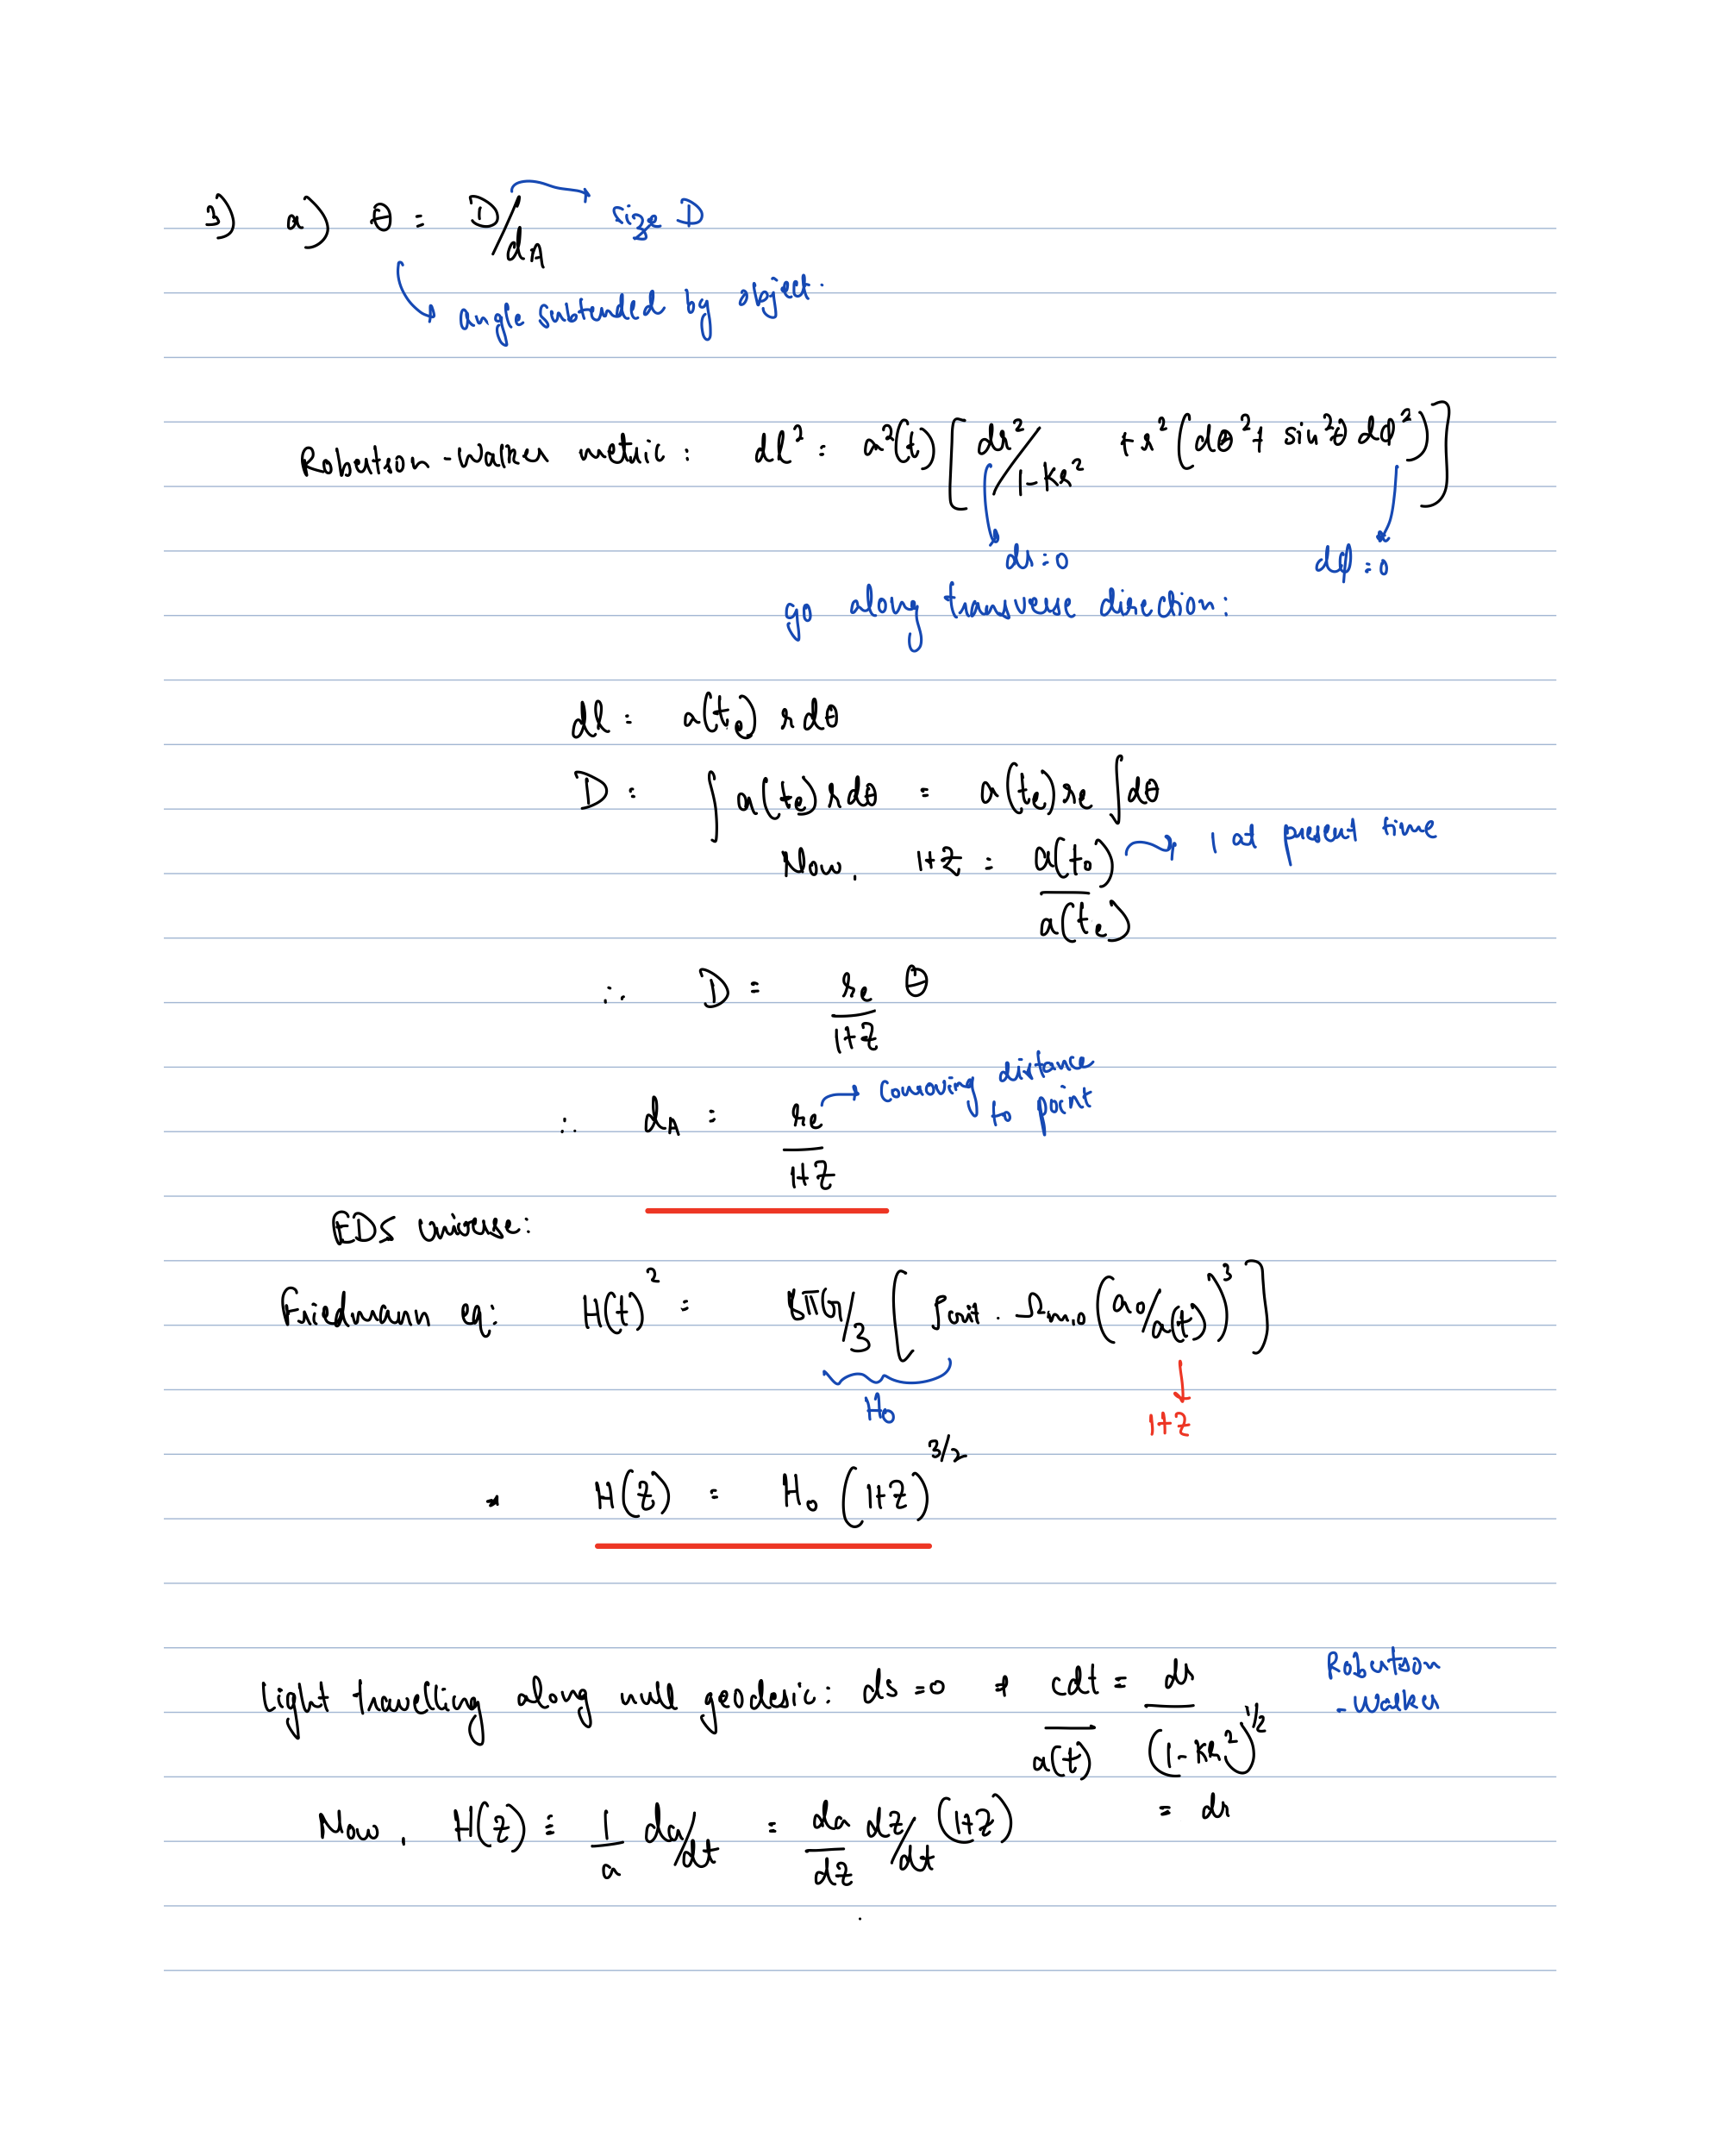 3) a) θ = D/dA → size D
↳ angle subtended by object.
Robertson-Walker metric: dl² = a²(t) [dr²/1-kr² + r²(dθ² + sin²θ dφ²)]
dr=0 dφ=0
go along transverse direction:
dl = a(te) r dθ
D = ∫ a(te) r dθ = a(te) re ∫dθ
Now, 1+z = a(t0)/a(te) → 1 at present time
∴ D = re/1+z θ
∴ dA = re/1+z → comoving distance to point
EDS universe:
Friedmann eq: H(t)² = 8πG/3 [ρcrit . Ωm,0 (a0/a(t))³]
H0 1+z
→ H(z) = H0 (1+z)^3/2
Light travelling along null geodesic: ds=0 → cdt/a(t) = dr/(1-kr²)^1/2 Robertson-Walker
= dr
Now, H(z) = 1/a da/dt = da/dz dz/dt (1+z)